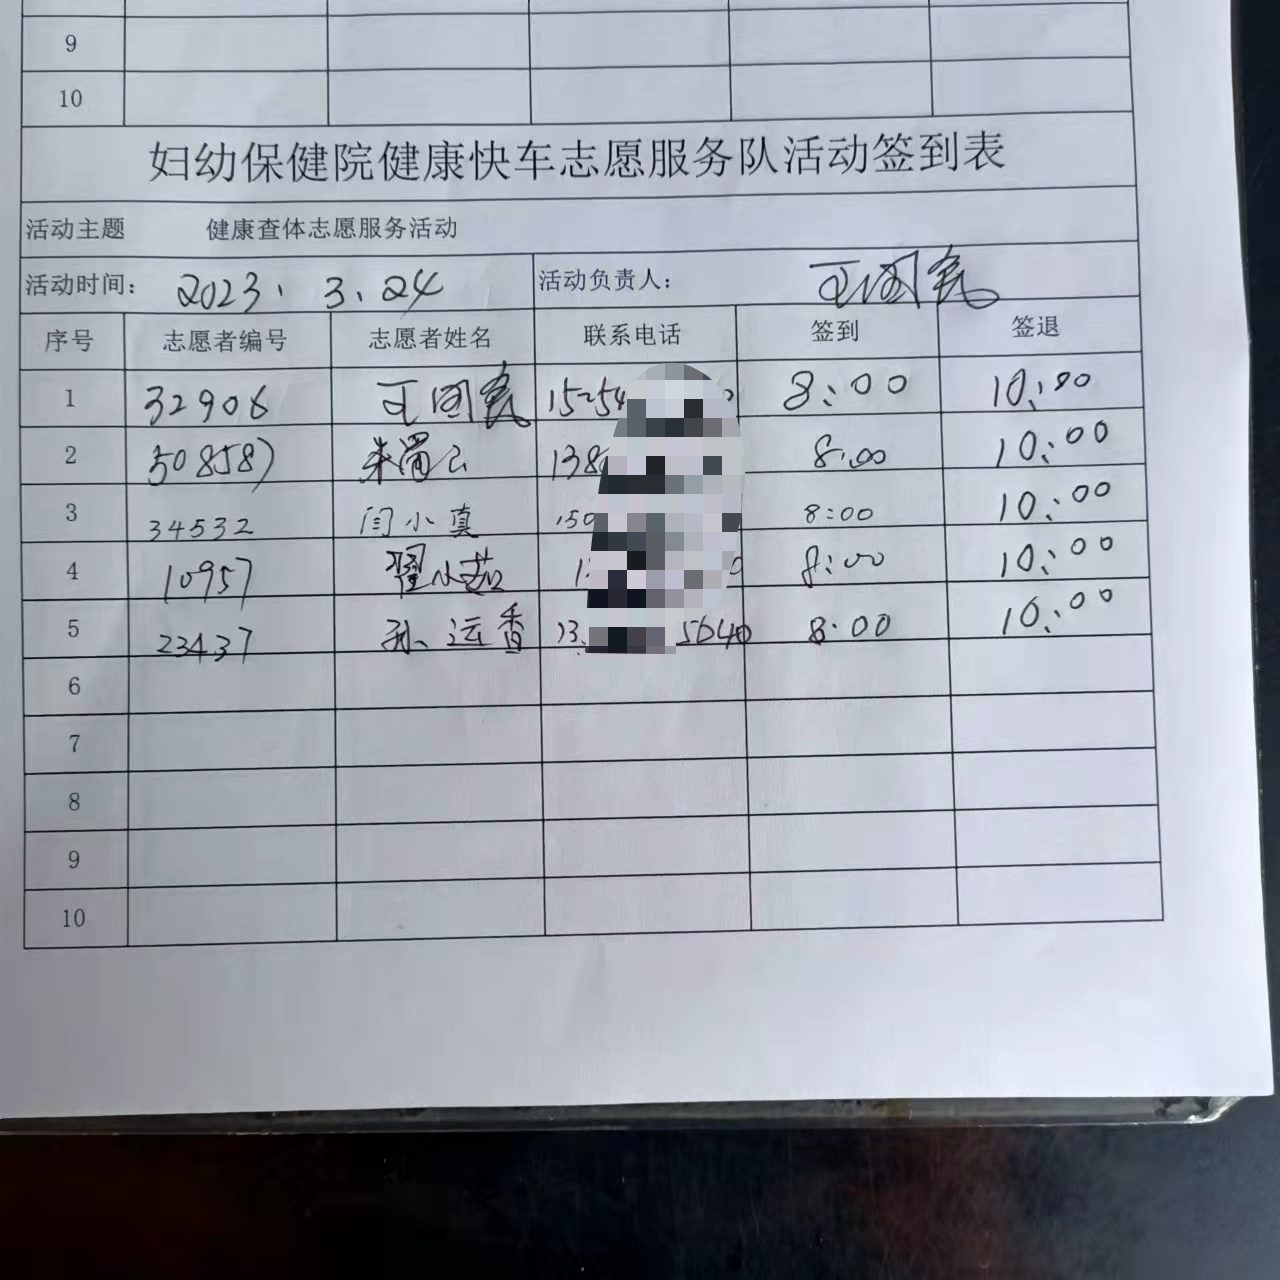 9
10
妇幼保健院健康快车志愿服务队活动签到表
活动主题 健康查体志愿服务活动
活动时间: 2023. 3. 24 活动负责人:
序号 志愿者编号 志愿者姓名 联系电话 签到 签退
1 32906 15254 8:00 10:00
2 508587 138 8:00 10:00
3 34532 闫小真 150 8:00 10:00
4 10957 翟小茹 1 8:00 10:00
5 23437 孙运香 13 5640 8:00 10:00
6
7
8
9
10